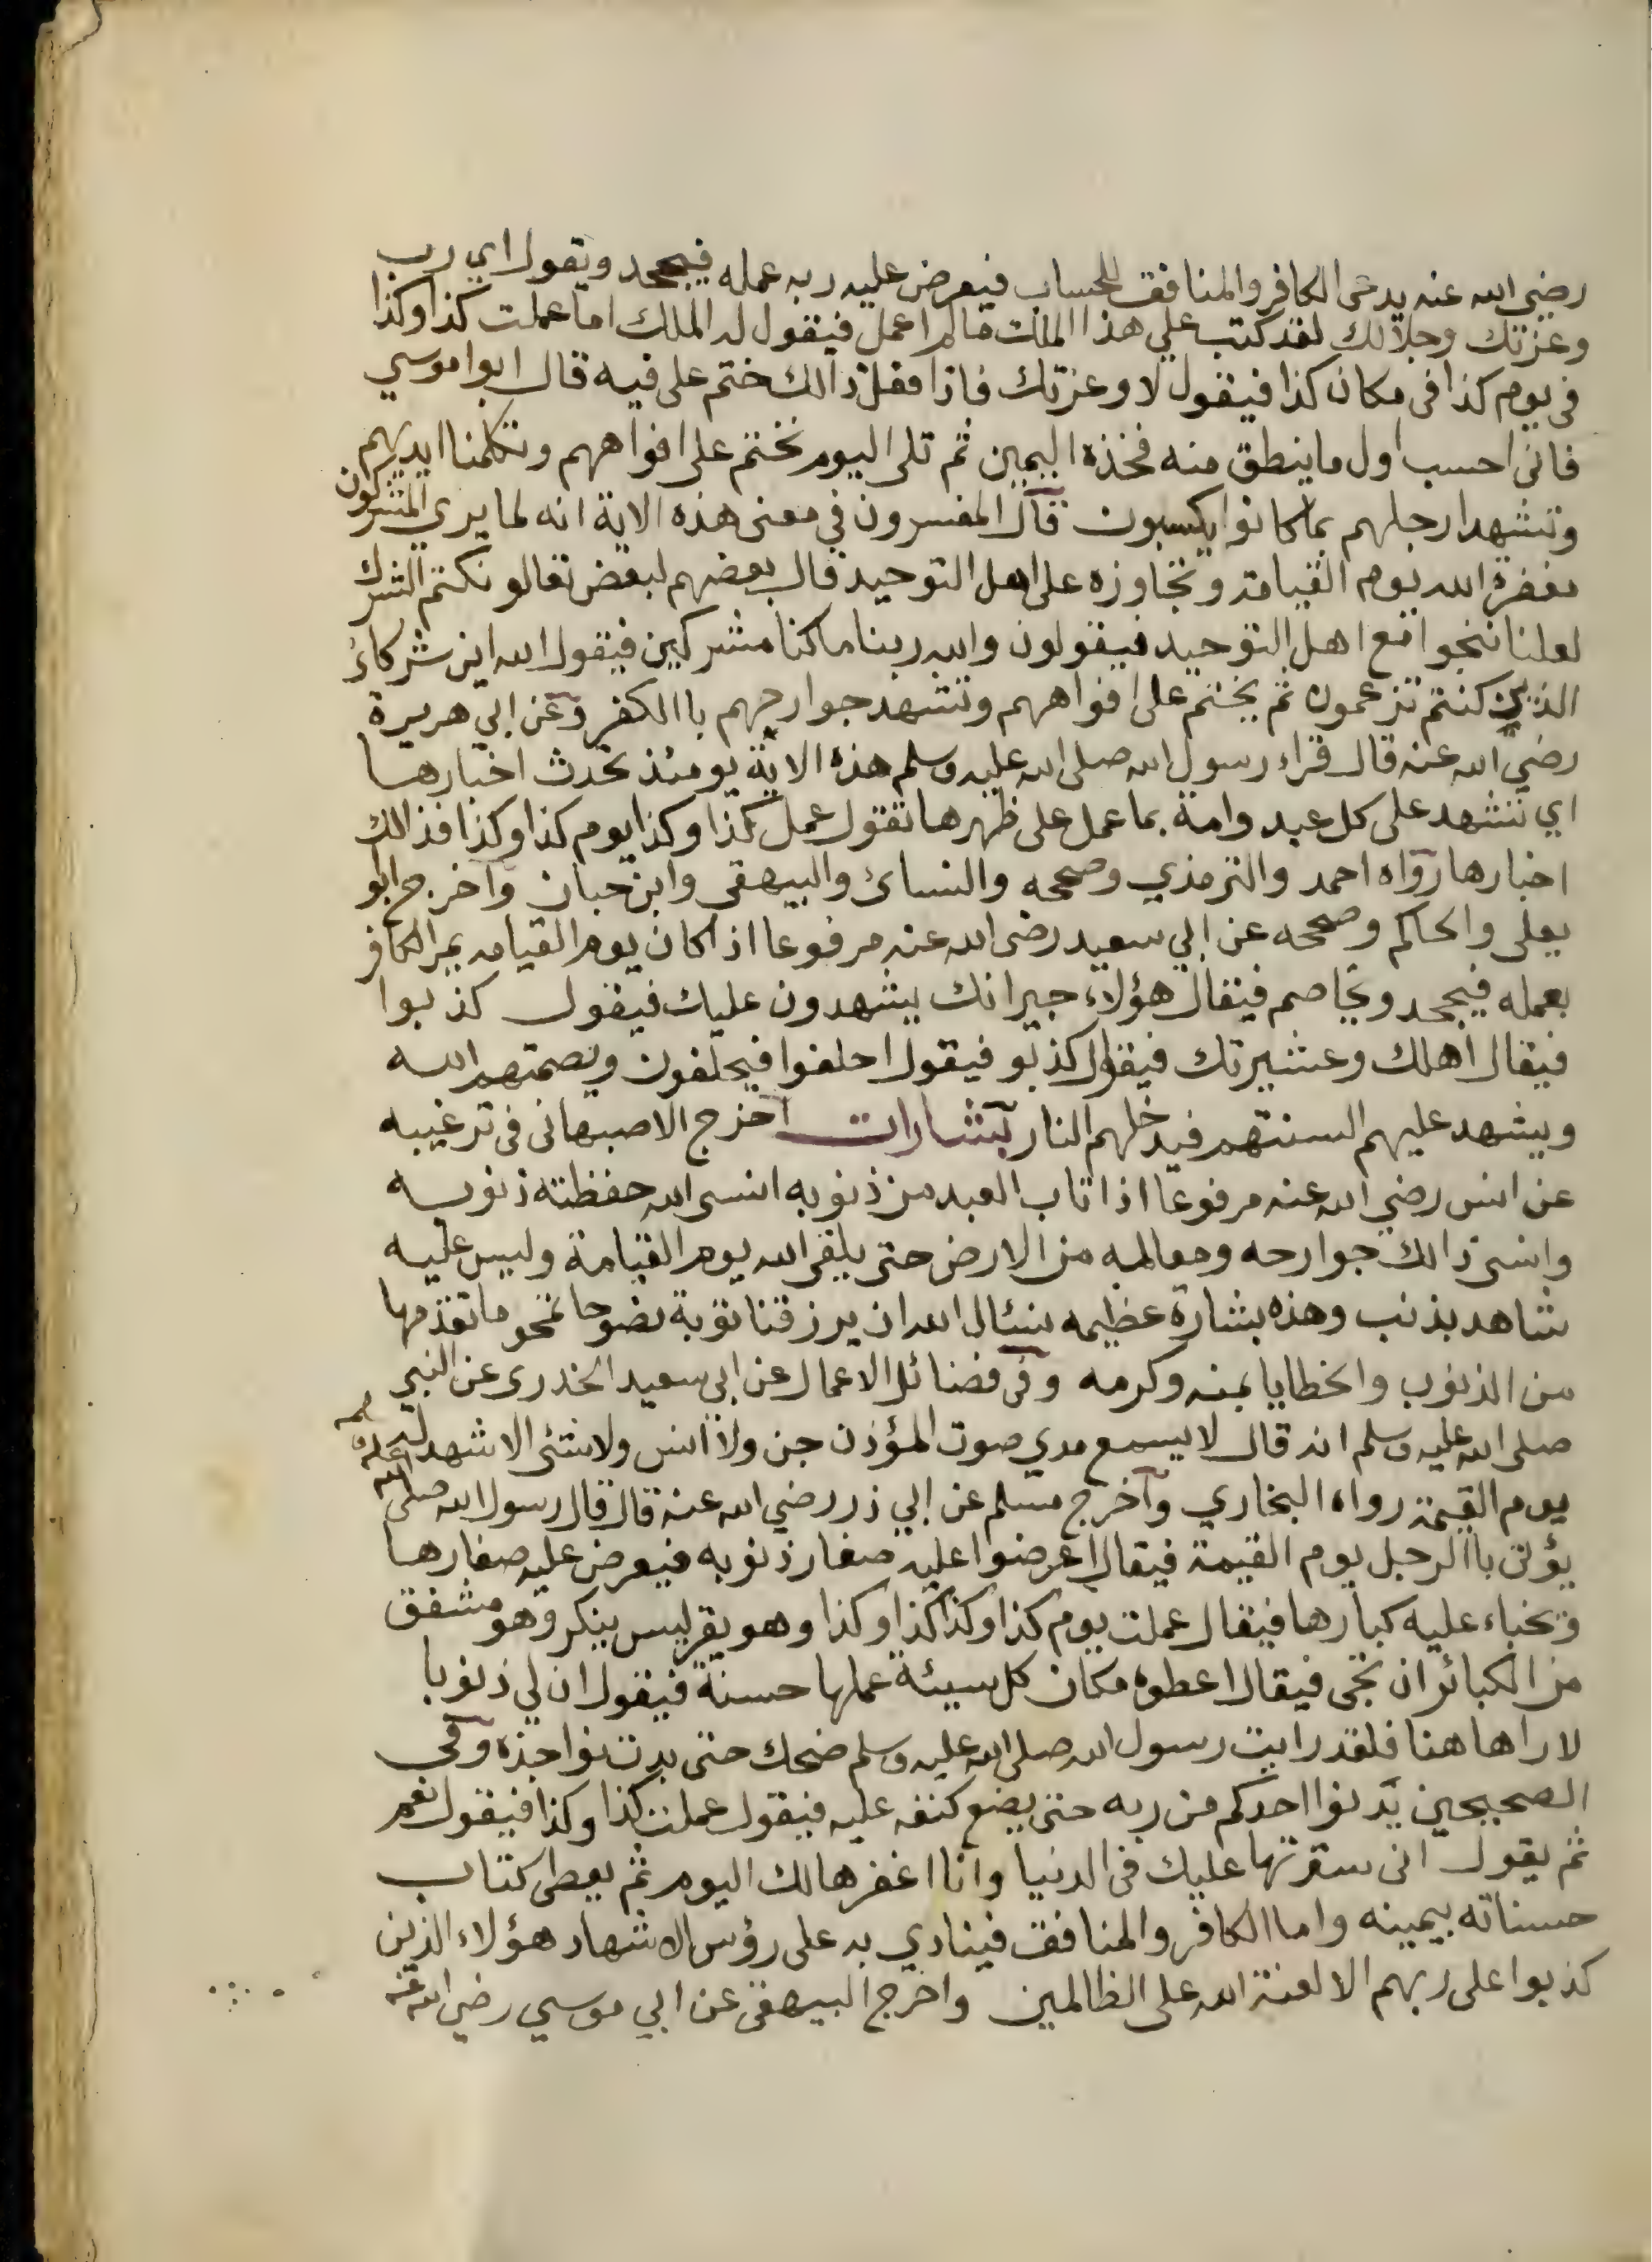 رضي الله عنه يدعى الكافر والمنافق للحساب فيعرض عليه ربه عمله فيجحد ويقول اي رب
وعزتك وجلالك لقد كتب علي هذا الملك مالم اعمل فيقول له الملك اما عملت كذا وكذا
في يوم كذا في مكان كذا فيقول لا وعزتك فاذا فعل ذالك ختم على فيه قال ابوا موسي
فاني احسب اول ما ينطق منه فخذه اليمين ثم تلى اليوم نختم على افواههم وتكلمنا ايديهم
وتشهد ارجلهم بما كانوا يكسبون قال المفسرون في معنى هذه الاية انه لما يري المشركون
مغفرة الله يوم القيامة وتجاوزه على اهل التوحيد قال بعضهم لبعض تعالو نكتم الشرك
لعلنا ننجوا مع اهل التوحيد فيقولون والله ربنا ما كنا مشركين فيقول الله اين شركائ
الذين كنتم تزعمون ثم يختم على افواههم وتشهد جوارحهم باالكفر وعن ابي هريرة
رضي الله عنه قال قراء رسول الله صلى الله عليه وسلم هذه الاية يومئذ تحدث اخبارها
اي تشهد على كل عبد وامة بما عمل على ظهرها تقول عمل كذا وكذا يوم كذا وكذا فذالك
اخبارها رواه احمد والترمذي وصححه والنسائ والبيهقي وابن حبان واخرج ابو
يعلى والحاكم وصححه عن ابي سعيد رضي الله عنه مرفوعا اذا كان يوم القيامه يمر الكافر
بعمله فيجحد ويخاصم فيقال هؤلاء جيرانك يشهدون عليك فيقول كذبوا
فيقال اهلك وعشيرتك فيقول كذبو فيقول احلفوا فيحلفون ويصمتهم الله
ويشهد عليهم السنتهم فيدخلهم النار بشارات اخرج الاصبهاني في ترغيبه
عن انس رضي الله عنه مرفوعا اذا تاب العبد من ذنوبه انسى الله حفظته ذنوبه
وانسى ذالك جوارحه ومعالمه من الارض حتى يلقى الله يوم القيامة وليس عليه
شاهد بذنب وهذه بشارة عظيمه نسئال الله ان يرزقنا توبة نصوحا تمحو ما تقدمها
من الذنوب والخطايا بمنه وكرمه وفي فضائل الاعمال عن ابي سعيد الخدري عن النبي
صلى الله عليه وسلم انه قال لا يسمع مدي صوت المؤذن جن ولا انس ولا شئ الا شهد له
يوم القيمة رواه البخاري واخرج مسلم عن ابي ذر رضي الله عنه قال قال رسول الله صلى الله عليه وسلم
يؤتى باالرجل يوم القيمة فيقال اعرضوا عليه صغار ذنوبه فيعرض عليه صغارها
وتخباء عليه كبارها فيقال عملت يوم كذا وكذا كذا وكذا وهو يقر ليس ينكر وهو مشفق
من الكبائر ان تجى فيقال اعطوه مكان كل سيئة عملها حسنة فيقول ان لي ذنوبا
لا راها هنا فلقد رايت رسول الله صلى الله عليه وسلم ضحك حتى بدت نواجذه وفي
الصحيحين يدنوا احدكم من ربه حتى يضع كنفه عليه فيقول عملت كذا وكذا فيقول نعم
ثم يقول اني سترتها عليك في الدنيا وانا اغفرها لك اليوم ثم يعطى كتاب
حسناته بيمينه واما الكافر والمنافق فينادي به على رؤس الاشهاد هؤلاء الذين
كذبوا على ربهم الا لعنة الله على الظالمين واخرج البيهقي عن ابي موسي رضي الله عنه